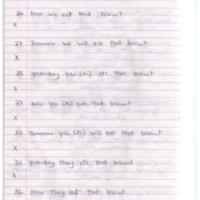 26 Now we eat that biscuit
X
27 Tomorrow we will eat that biscuit
X
28 yesterday you (Pl) ate that biscuit
X
29 Now you (Pl) eat that biscuit
X
30 Tomorrow you (Pl) will eat that biscuit
X
31 yesterday they ate that biscuit
X
32 Now they eat that biscuit
X